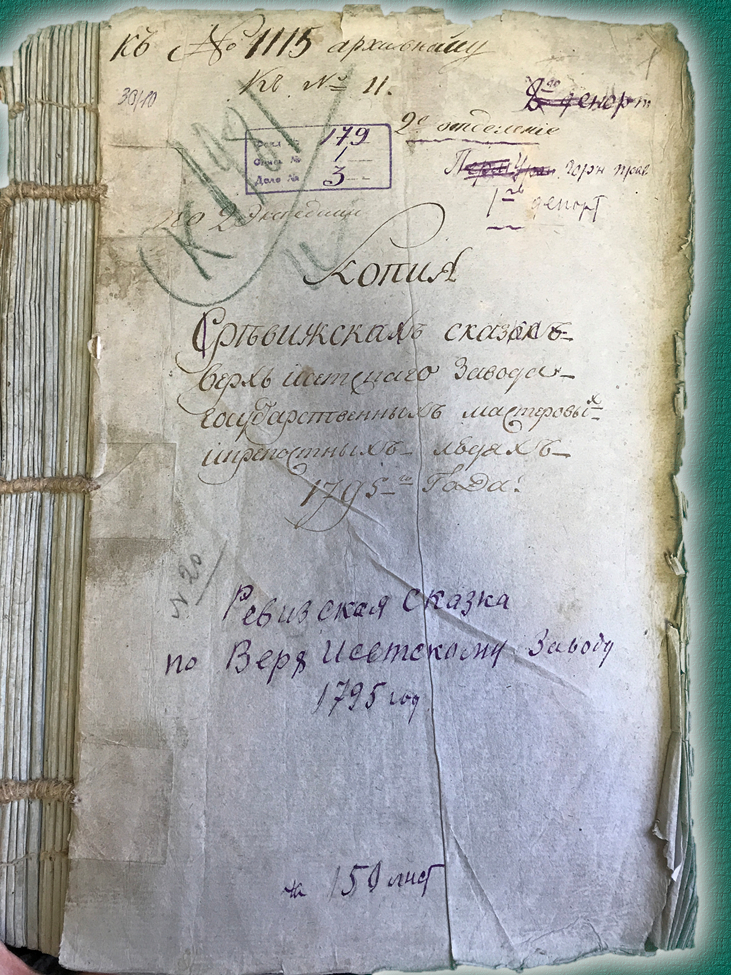 Къ № 1115 архивному
Къ № 11.
30/10
2ое отделенiе
Фонд № 179
Опись № 1
Дело № 3
горн прав
1ый депорт
по 2 Экспедиции
Копия
сказкъ
верхъ исетскаго Завода
государственныхъ мастеровыхъ
икрепостныхъ людяхъ
1795го Года.
N 20
Ревизская Сказка
по Верх Исетскому Заводу
1795 год
на 159 лист